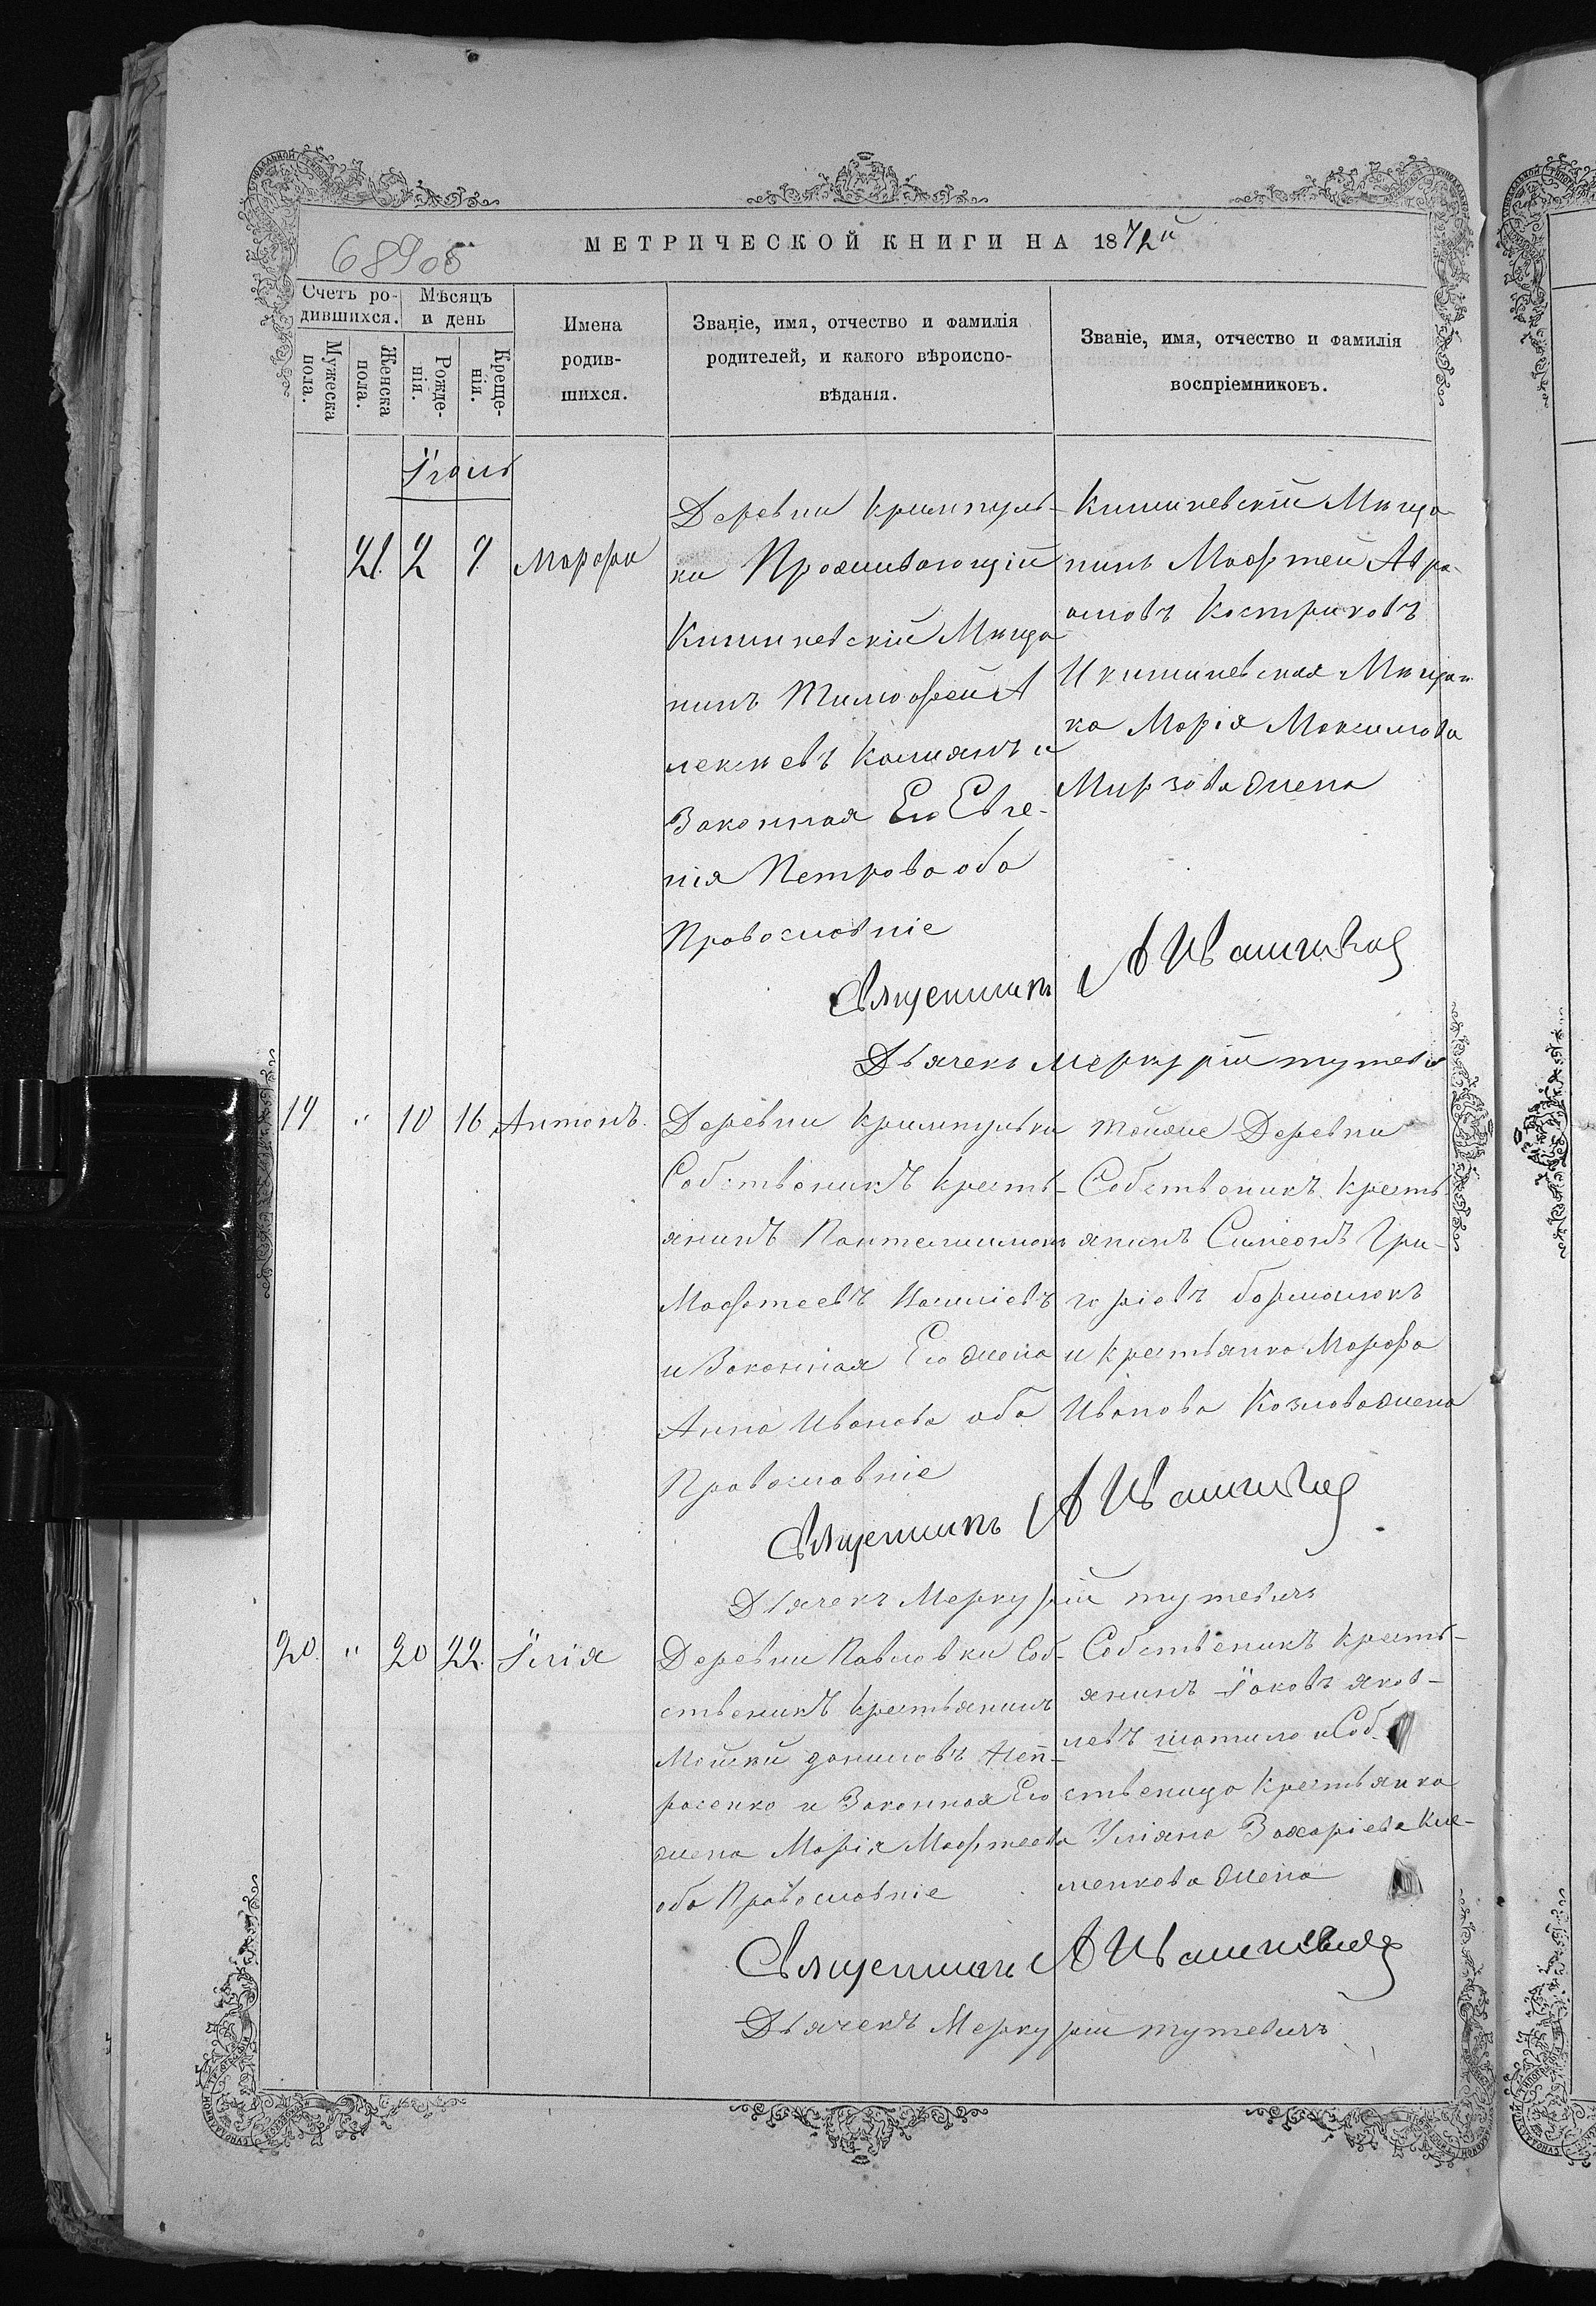 МЕТРИЧЕСКОЙ КНИГИ НА 1872й
68908
Счетъ ро-
дившихся.
Мѣсяцъ
и день
Мужеска
пола.
Женска
пола.
Рожде-
нія.
Креще-
нія.
Имена
родив-
шихся.
Званіе, имя, отчество и фамилія
родителей, и какого вѣроиспо-
вѣданія.
Званіе, имя, отчество и фамилія
воспріемниковъ.
Іюль
21 2 7 Марфа
Деревни Кримпуль-
ки Проживающій
Кишиневскій Мѣща
нинъ Тимофей А
лексѣевъ и
Законная Его Евге-
нія Петрова оба
Православніе
Кишиневскій Мѣща-
нинъ Мафтей Авра-
амовъ Костриковъ
И Кишиневская Мѣщан
ка Марія Максимова
Мирзова жена
Священникъ А
Дьячекъ Меркурій
19 " 10 16 Антонъ.
Деревни Кримпульки
Собственикъ Кресть-
янинъ Пантелимонъ
Мафтеевъ
и Законная Его жена
Анна Иванова оба
Православніе
тойже Деревни
Собственикъ Кресть-
янинъ Симеонъ Гри-
горіевъ
и Крестьянка Марфа
Иванова Козлова жена
Священникъ А
Дьячекъ Меркурій
20. " 20 22. Ілія
Деревни Павловки Соб-
ственикъ Крестьянинъ
даниловъ
и Законная Его
жена Марія Мафтеева
оба Православніе
Собственикъ Кресть-
янинъ Іаковъ Яков-
левъ шатило и Соб-
ственица Крестьянка
Уліяна Захаріева Кли-
менкова жена
Священникъ А
Дьячекъ Меркурій